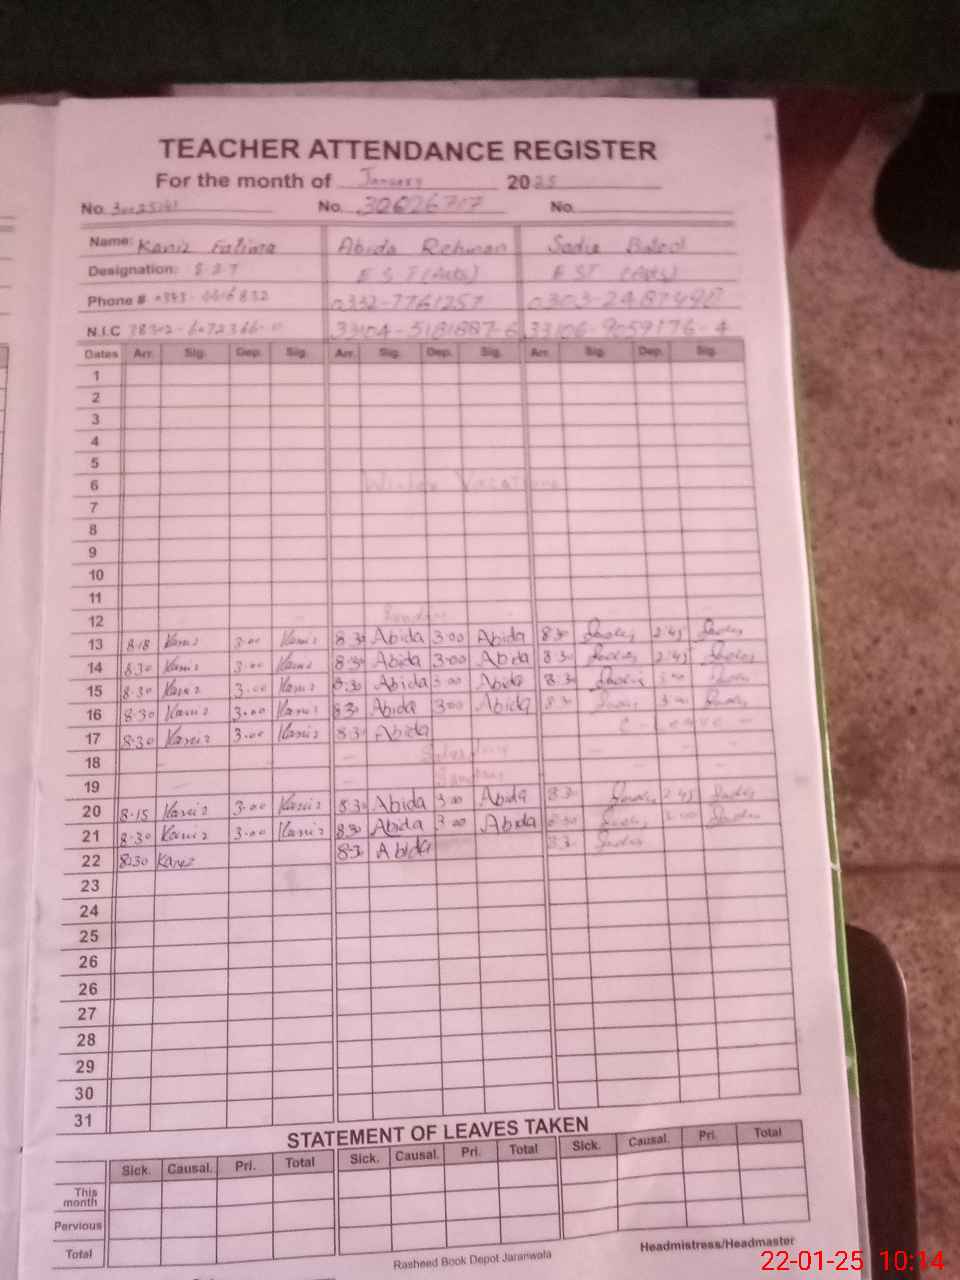 TEACHER ATTENDANCE REGISTER
For the month of January 2025
No. No. 30626717 No.
Name: Kaniz Fatima Abida Rehman Sadia Batool
Designation: E S T (Arts) E ST (Arts)
Phone # 0332-7761257
N.I.C 33104-5181887-6 33106-9059176-4
Dates Arr. Sig. Dep. Sig. Arr. Sig. Dep. Sig. Arr. Sig. Dep. Sig.
1
2
3
4
5
6 Winter Vacations
7
8
9
10
11
12 Sunday
13 8:18 Kaniz 3:00 Kaniz 8:30 Abida 3:00 Abida 8:30 2:45
14 8:30 Kaniz 3:00 Kaniz 8:30 Abida 3:00 Abida 8:30 2:45
15 8:30 Kaniz 3:00 Kaniz 8:30 Abida 3:00 Abida 8:30 3:00
16 8:30 Kaniz 3:00 Kaniz 8:30 Abida 3:00 Abida 8:30 3:00
17 8:30 Kaniz 3:00 Kaniz 8:30 Abida C - Leave -
18 - - Saturday - - -
19 - - Sunday
20 8:15 Kaniz 3:00 Kaniz 8:30 Abida 3:00 Abida 8:30 2:45
21 8:30 Kaniz 3:00 Kaniz 8:30 Abida 3:00 Abida 8:30 3:00
22 8:30 Kaniz 8:30 Abida 8:30
23
24
25
26
26
27
28
29
30
31
STATEMENT OF LEAVES TAKEN
Sick. Causal. Pri. Total Sick. Causal. Pri. Total Sick. Causal. Pri. Total
This month
Pervious
Total
Rasheed Book Depot Jaranwola
Headmistress/Headmaster
22-01-25 10:14